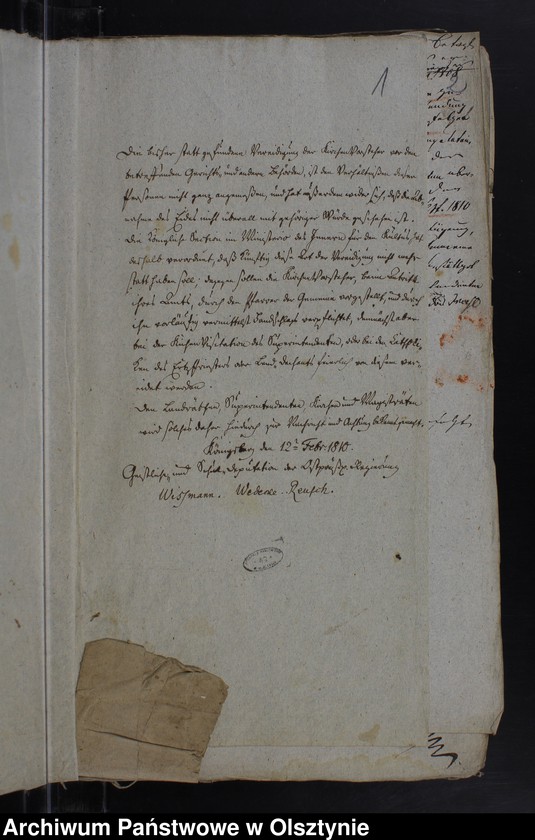 1
Die bisher statt gefundene Vereidigung der Kirchen Vorsteher vor den
betreffenden Gerichts und andern Behörden, ist den Verhältnißen dieser
Personen nicht ganz angemeßen, und hat außerdem wider sich, daß die Ab-
nahme des Eides nicht überall mit gehöriger Würde geschehen ist.
Die Königliche Section im Ministerio des Innern für den Kultus hat
deshalb verordnet, daß künftig diese Art der Vereidigung nicht mehr
statt haben soll; dagegen sollen die Kirchen Vorsteher, beim Antritt
ihres Amts, durch den Pfarrer der Gemeine vorgestellt, und durch
ihn vorläufig vermittelst Handschlags verpflichtet, demnächst aber
bei der Kirchen Visitation des Superintendenten, oder bei den Catholi-
ken des Erzpriesters oder Land-Dechants feierlich von diesem ver-
eidet werden.
Den Landräthen, Superintendenten, Kirchen und Magisträten
wird solches daher hiedurch zur Nachricht und Achtung bekannt gemacht.
Königsberg den 12ten Febr. 1810.
Geistliche und Schul-Deputation der Ostpreuß. Regierung
Wißmann. Wedeke. Reusch.
1810
Archiwum Państwowe w Olsztynie